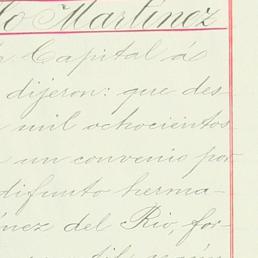 lo Martinez
Capital ás
dijeron: que des-
mil ochocientos
un convenio por
difunto herma-
nez del Rio, for-